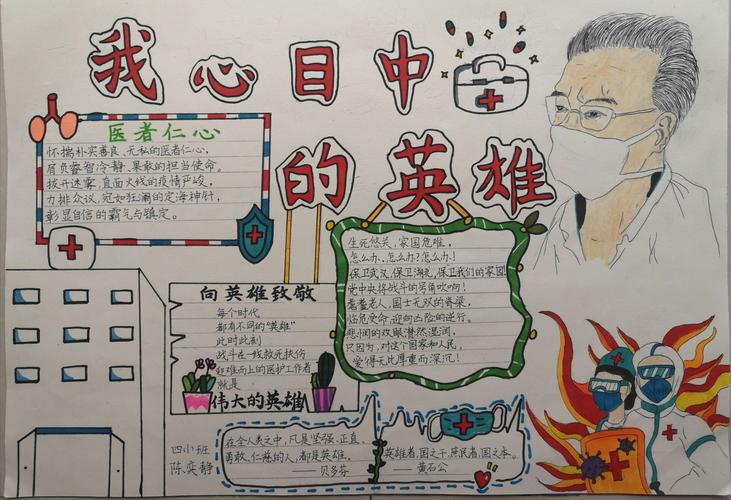 我心目中
的英雄
医者仁心
怀揣朴实善良、无私的医者仁心,
肩负睿智冷静、果敢的担当使命。
拨开迷雾,直面火线的疫情严峻,
力排众议,宛如狂澜的定海神针,
彰显自信的霸气与镇定。
向英雄致敬
每个时代
都有不同的“英雄”
此时此刻
战斗在一线救死扶伤
和难而上的医护工作者
就是
伟大的英雄
生死攸关、家国危难,
怎么办、怎么办?怎么办!
保卫武汉,保卫湖北,保卫我们的家园
党中央将战斗的号角吹响!
耄耋老人,国士无双的脊梁,
临危受命,迎向凶险的逆行。
悲悯的双眼潸然湿润,
只因为,对这个国家和人民,
爱得无比厚重而深沉!
四小班
陈奕静
在全人类之中,凡是坚强、正直、
勇敢、仁慈的人,都是英雄。
——贝多芬
英雄者,国之干,庶民者,国之本。
——黄石公